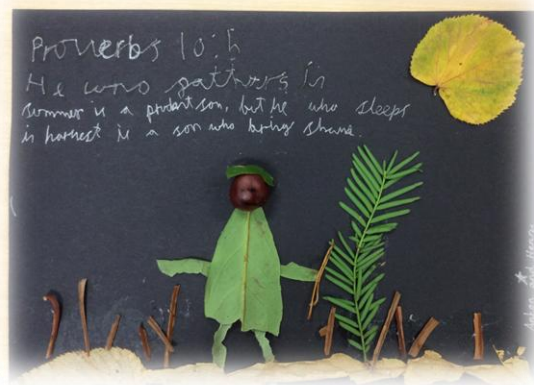 Proverbs 10:5
He who gathers in
summer is a prudent son, but he who sleeps
in harvest is a son who bring shame.
and Henry